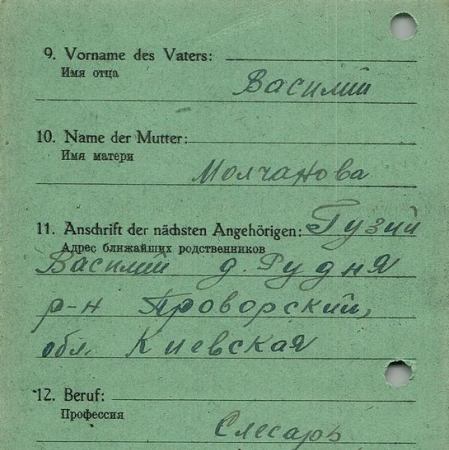 9. Vorname des Vaters:
Имя отца
Василий
10. Name der Mutter:
Имя матери
Молчанова
11. Anschrift der nächsten Angehörigen: Гузий
Адрес ближайших родственников
Василий д. Рудня
р-н Проворский,
обл. Киевская
12. Beruf:
Профессия
Слесарь